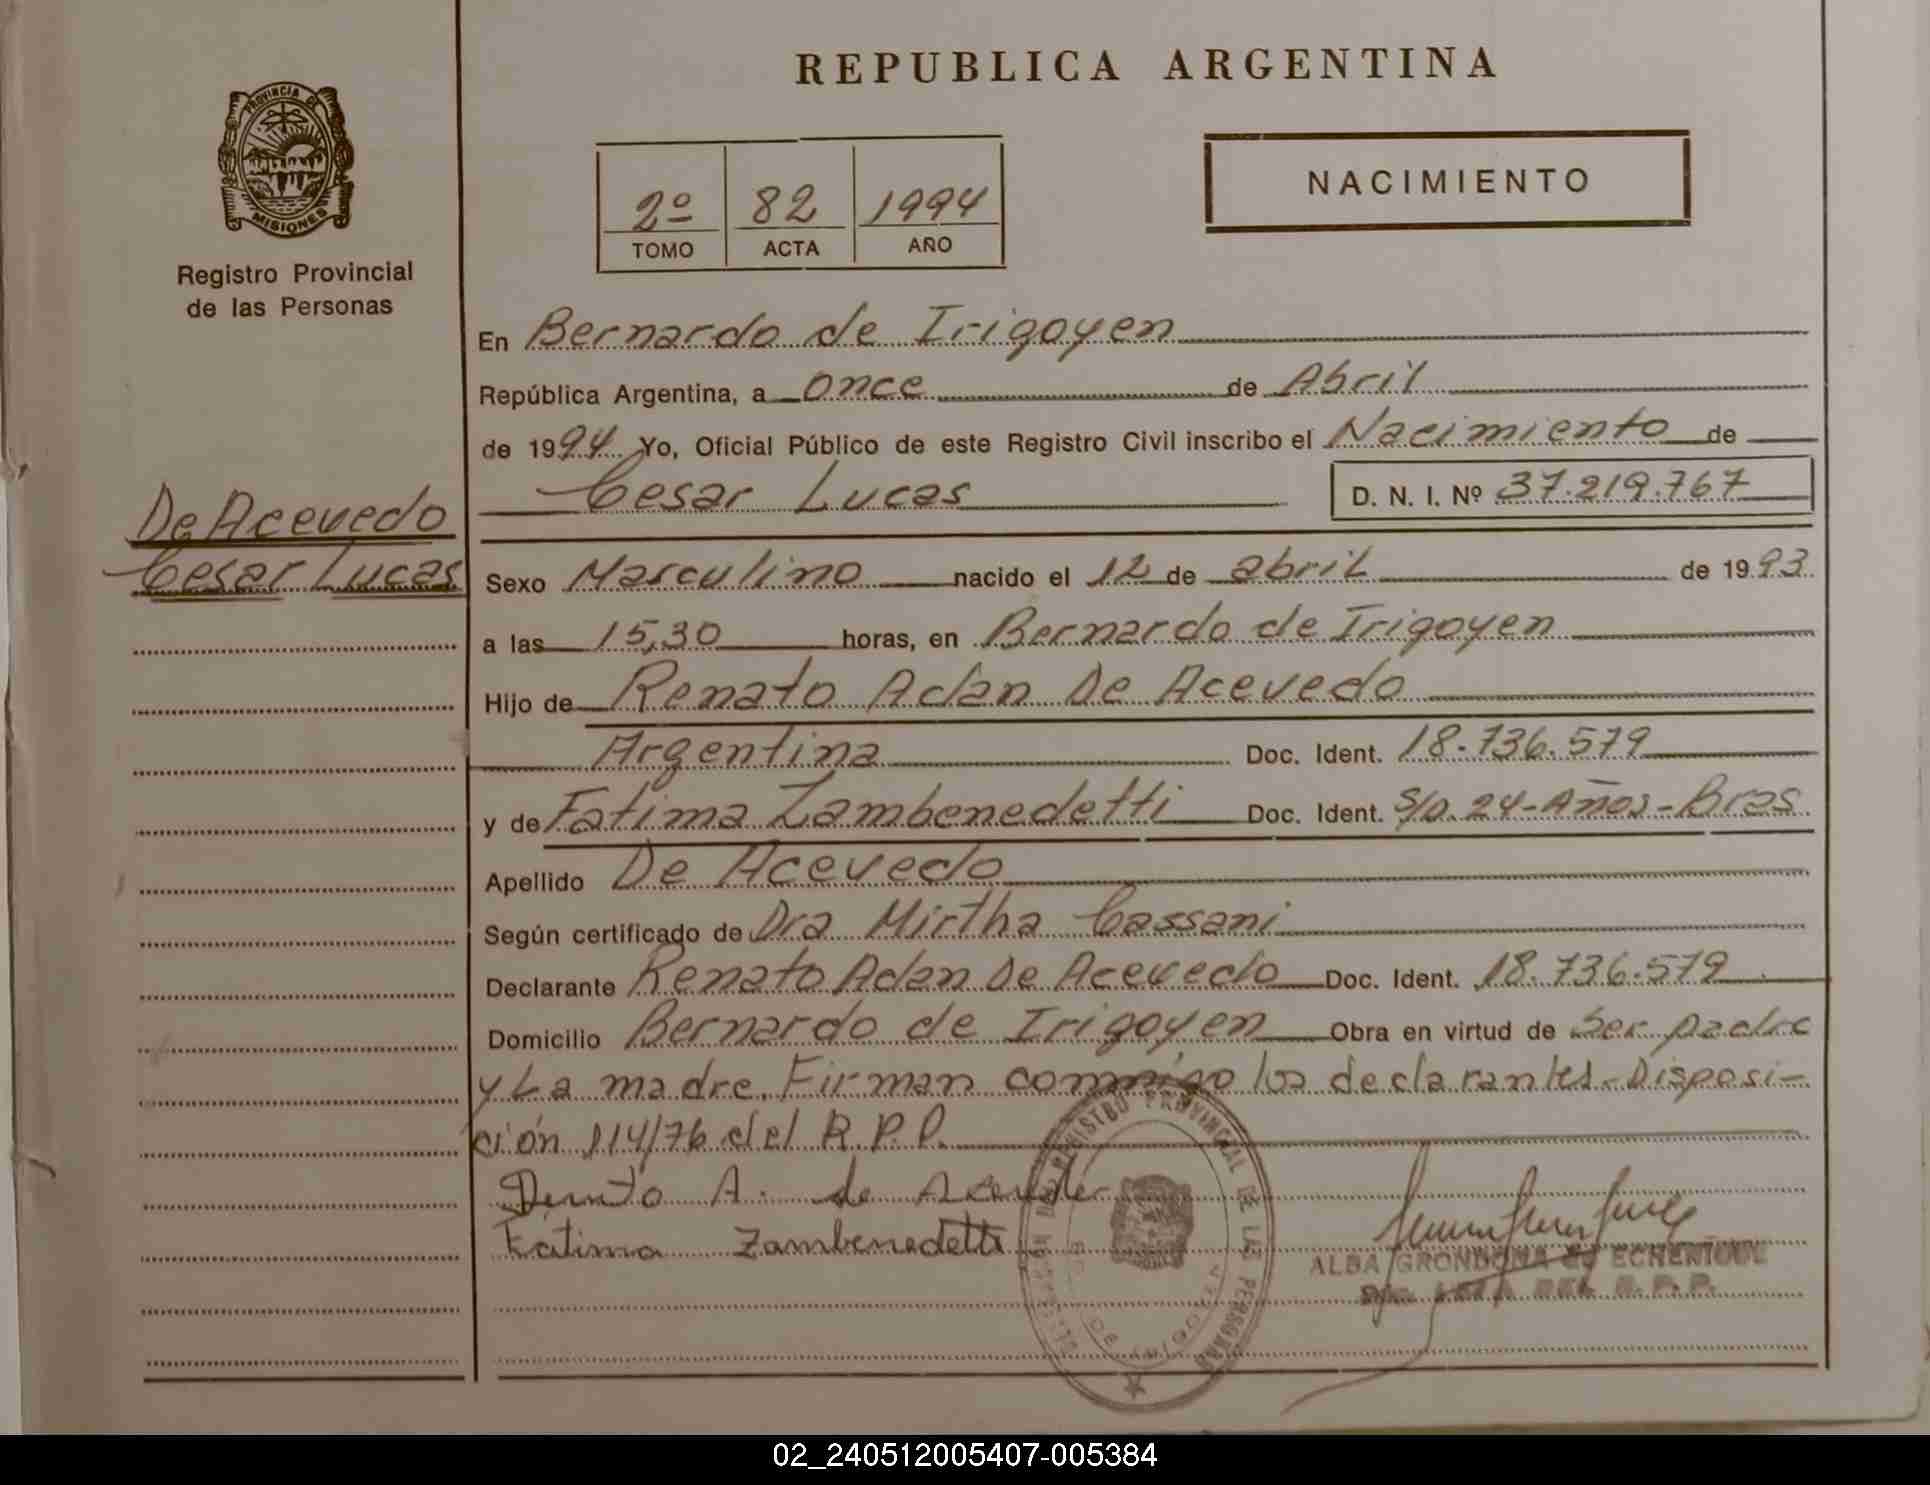 REPUBLICA ARGENTINA
PROVINCIA DE
MISIONES
Registro Provincial
de las Personas
2º 82 1994
TOMO ACTA AÑO
NACIMIENTO
En Bernardo de Irigoyen
República Argentina, a once de Abril
de 1994 Yo, Oficial Público de este Registro Civil inscribo el Nacimiento de
Cesar Lucas D. N. I. Nº 37.219.767
De Acevedo
Cesar Lucas
Sexo Masculino nacido el 12 de abril de 1993
a las 15,30 horas, en Bernardo de Irigoyen
Hijo de Renato Adan De Acevedo
Argentina Doc. Ident. 18.736.579
y de Fatima Zambenedetti Doc. Ident. S/D. 24-Años-Bras.
Apellido De Acevedo
Según certificado de Dra Mirtha Cassani
Declarante Renato Adan De Acevedo Doc. Ident. 18.736.579
Domicilio Bernardo de Irigoyen Obra en virtud de Ser padre
y La madre. Firman conmigo los declarantes - Disposi-
ción 114/76 del R.P.P.
A. de
Fatima Zambenedetti
REGISTRO PROVINCIAL DE LAS PERSONAS
ALBA GRONDONA de ECHENIQUE
DEL R. P. P.
02_240512005407-005384